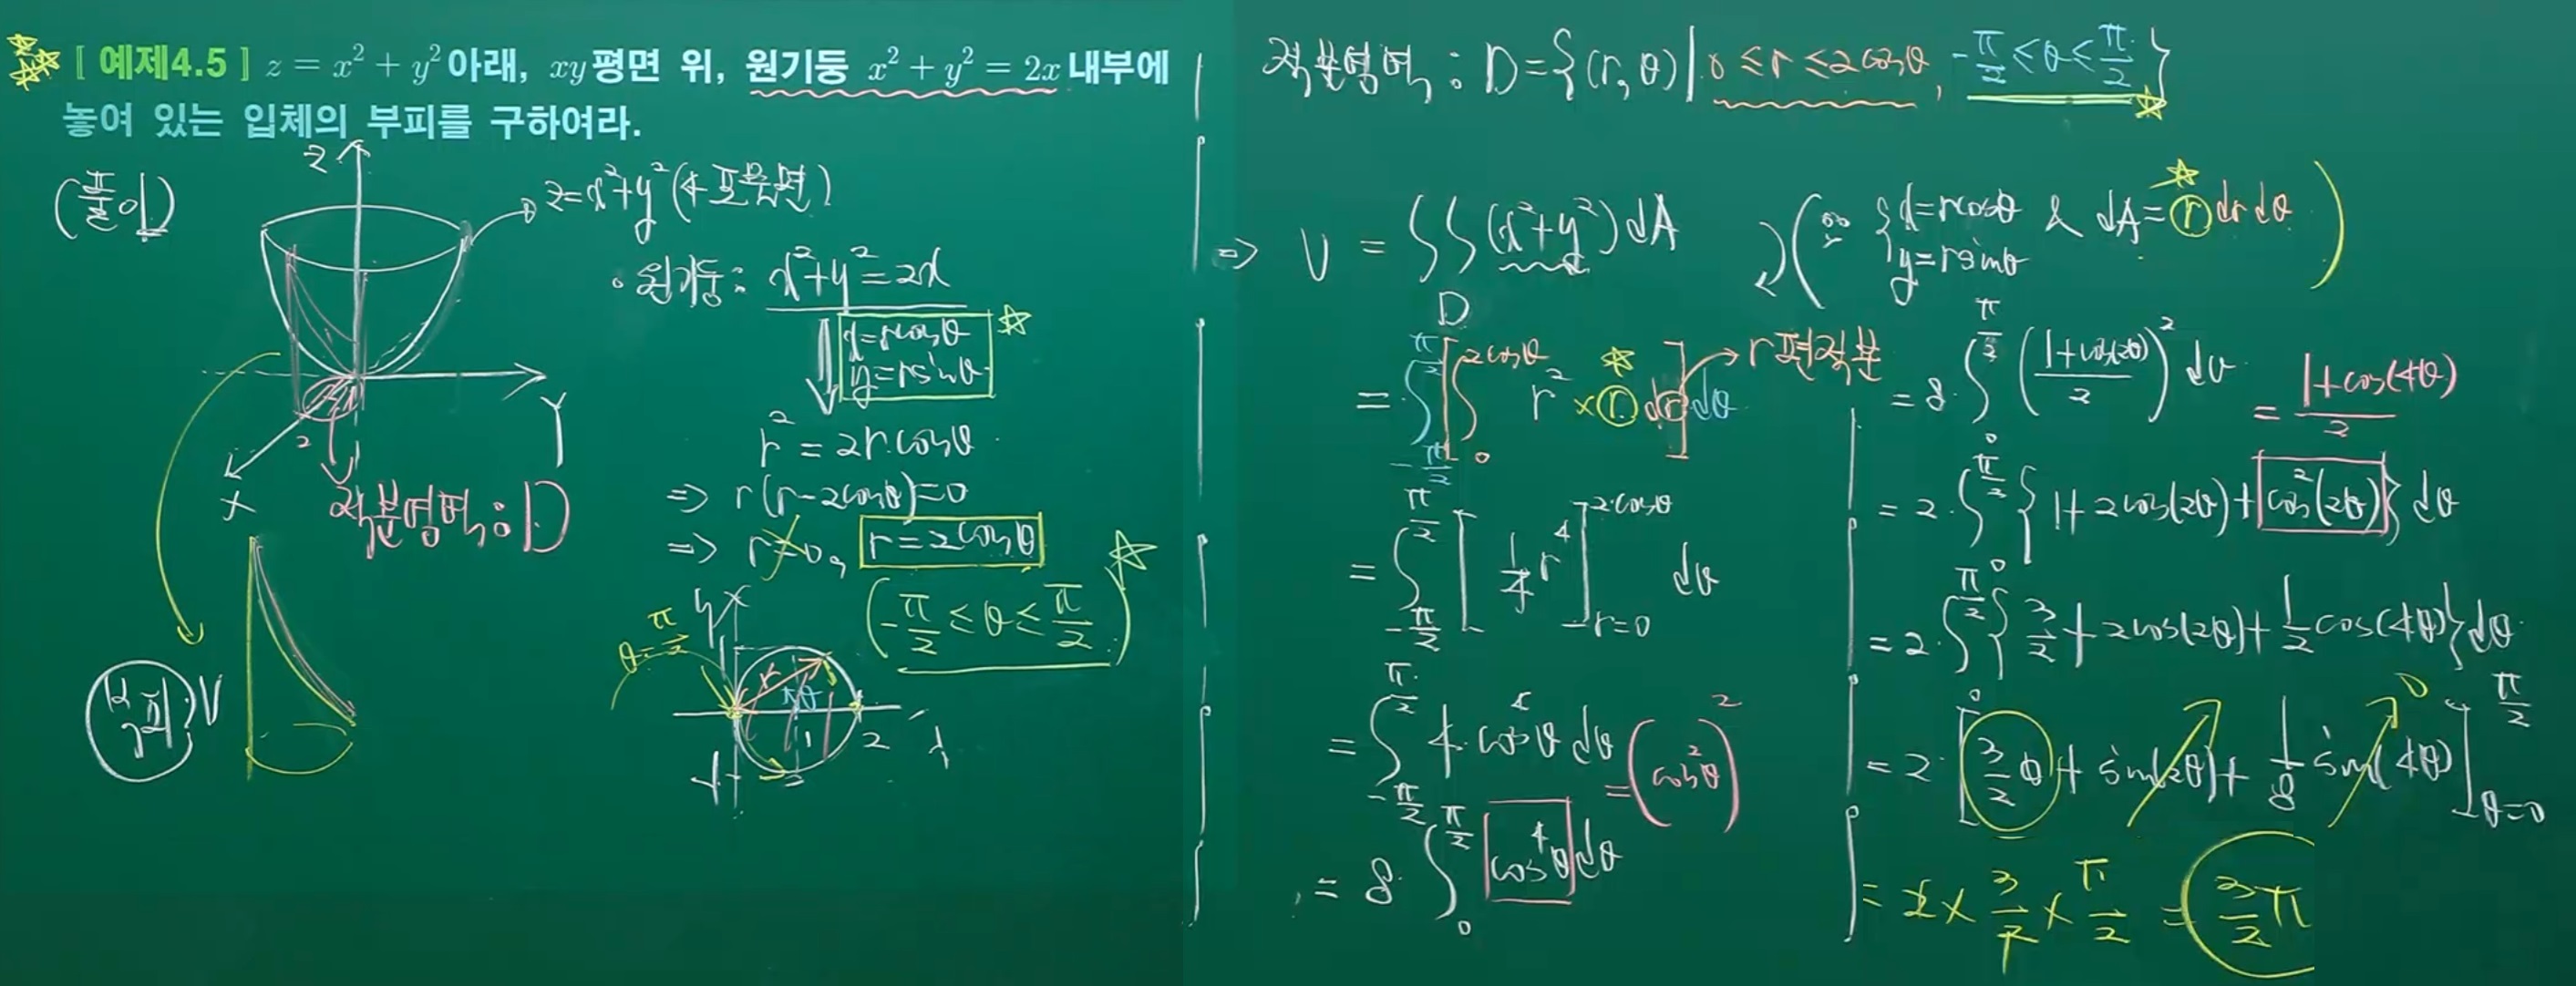 [ 예제4.5 ] z = x² + y² 아래, xy 평면 위, 원기둥 x² + y² = 2x 내부에
놓여 있는 입체의 부피를 구하여라.
(풀이)
Z
z=x²+y² (포물면)
Y
X
2
적분영역 : D
부피 V
• 원기둥 : x²+y²=2x
x=rcosθ
y=rsinθ
r² = 2r·cosθ
⇒ r(r-2cosθ)=0
⇒ r=0, r=2cosθ
(-π/2 ≤ θ ≤ π/2)
θ=π/2
y
r
θ
1
2
x
적분영역 : D={(r,θ)| 0≤r≤2cosθ, -π/2≤θ≤π/2}
⇒ V = ∬_D (x²+y²)dA (∵ {x=rcosθ y=rsinθ & dA=r dr dθ)
= ∫_{-π/2}^{π/2} [∫_0^{2cosθ} r² × r dr] dθ → r 편적분
= ∫_{-π/2}^{π/2} [1/4 r⁴]_{r=0}^{2·cosθ} dθ
= ∫_{-π/2}^{π/2} 4·cos⁴θ dθ
=(cos²θ)²
= 8·∫_0^{π/2} cos⁴θ dθ
= 8·∫_0^{π/2} ((1+cos(2θ))/2)² dθ
= (1+cos(4θ))/2
= 2·∫_0^{π/2} {1+2cos(2θ)+cos²(2θ)} dθ
= 2·∫_0^{π/2} {3/2+2cos(2θ)+1/2 cos(4θ)} dθ
= 2·[3/2 θ + sin(2θ) + 1/8 sin(4θ)]_{θ=0}^{π/2}
0
= 2 × 3/2 × π/2 = 3/2 π